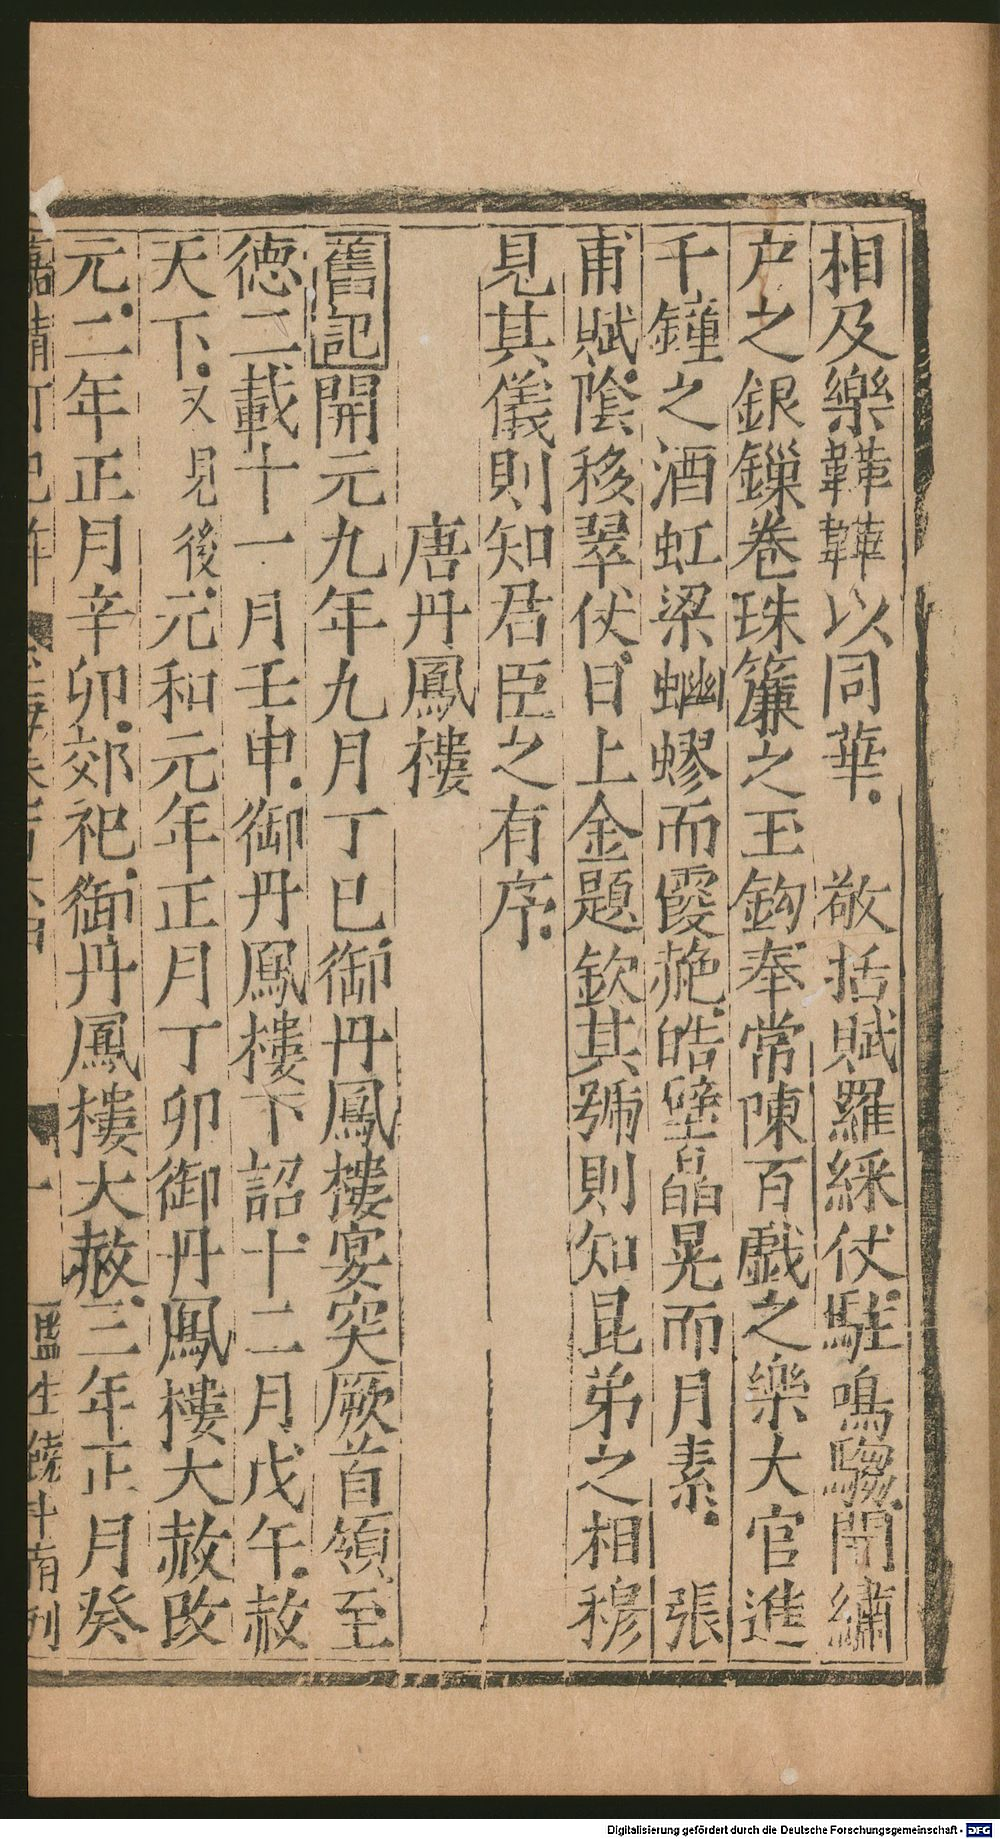 相及樂韡韡以同華　敬括賦羅綵仗駐鳴騶開繡
户之銀鏁卷珠簾之玉鈎奉常陳百戲之樂大官進
千鐘之酒虹梁蚴蟉而霞赩皓壁皛晃而月素　張
甫賦陰移翠仗日上金題欽其號則知昆弟之相穆
見其儀則知君臣之有序
唐丹鳳樓
舊記開元九年九月丁巳御丹鳳樓宴突厥首領至
德二載十一月壬申御丹鳳樓下詔十二月戊午赦
天下又見後元和元年正月丁卯御丹鳳樓大赦改
元二年正月辛卯郊祀御丹鳳樓大赦三年正月癸
嘉靖 一 監生饒斗南刊
Digitalisierung gefördert durch die Deutsche Forschungsgemeinschaft - DFG